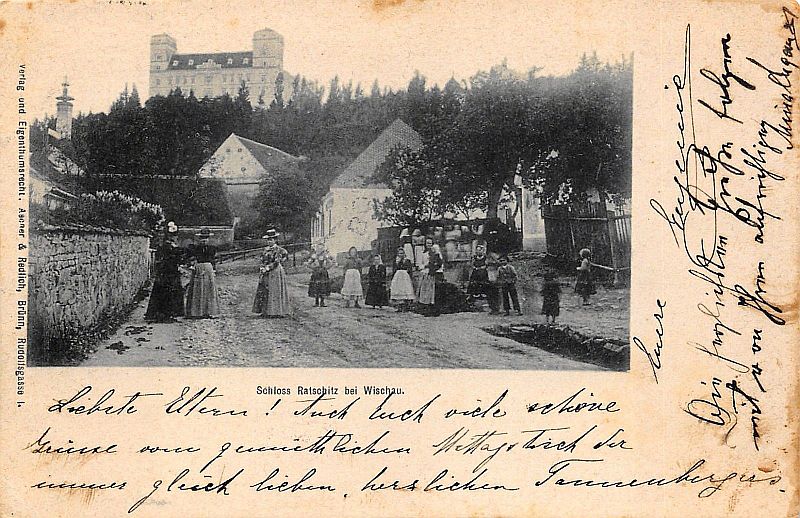 Verlag und Eigenthumsrecht. Ascher & Redlich, Brünn, Rudolfsgasse 1.
Schloss Ratschitz bei Wischau.
Liebste Eltern! Auch Euch viele schöne
Grüsse vom gemüthlichen Mittagstisch der
immer gleich lieben, herzlichen Tannenbergers.
Eure Eugenie
Die herzlichsten Grüße folgen
mit von Ihrem aufrichtigen